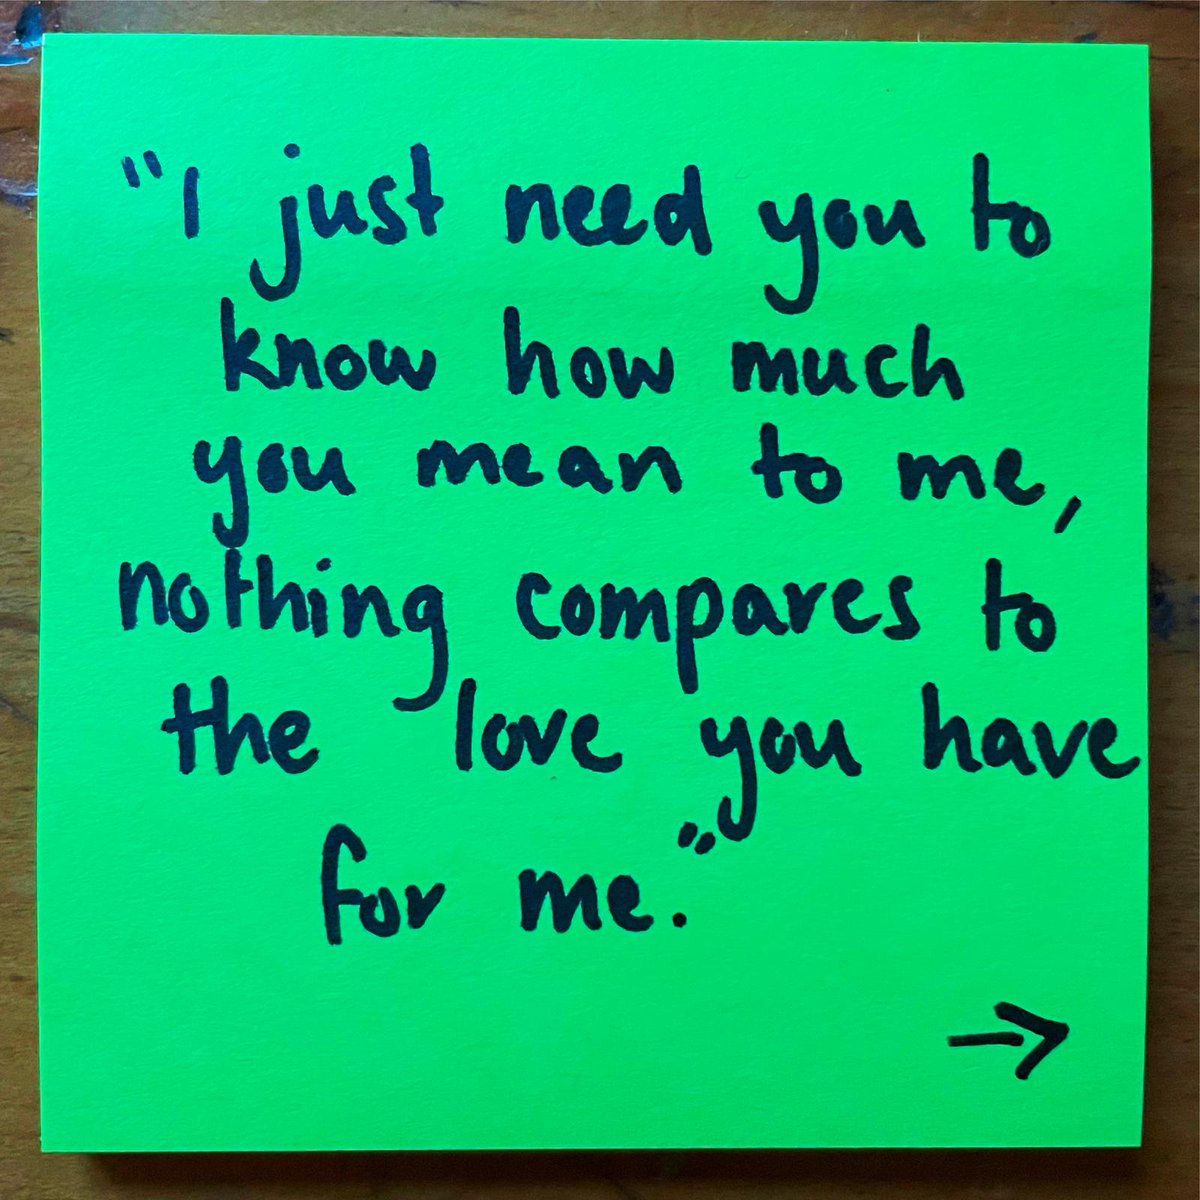 "I just need you to
know how much
you mean to me,
nothing compares to
the love you have
for me."
→